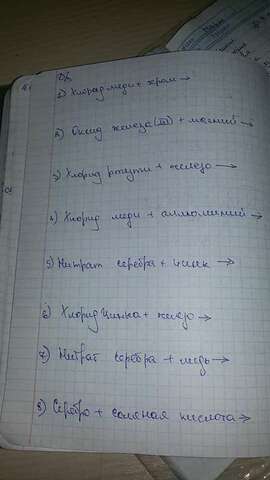 1) Хлорид меди + хром →
2) Оксид железа (III) + магний →
3) Хлорид ртути + железо →
4) Хлорид меди + алюминий →
5) Нитрат серебра + цинк →
6) Хлорид цинка + железо →
7) Нитрат серебра + медь →
8) Серебро + соляная кислота →